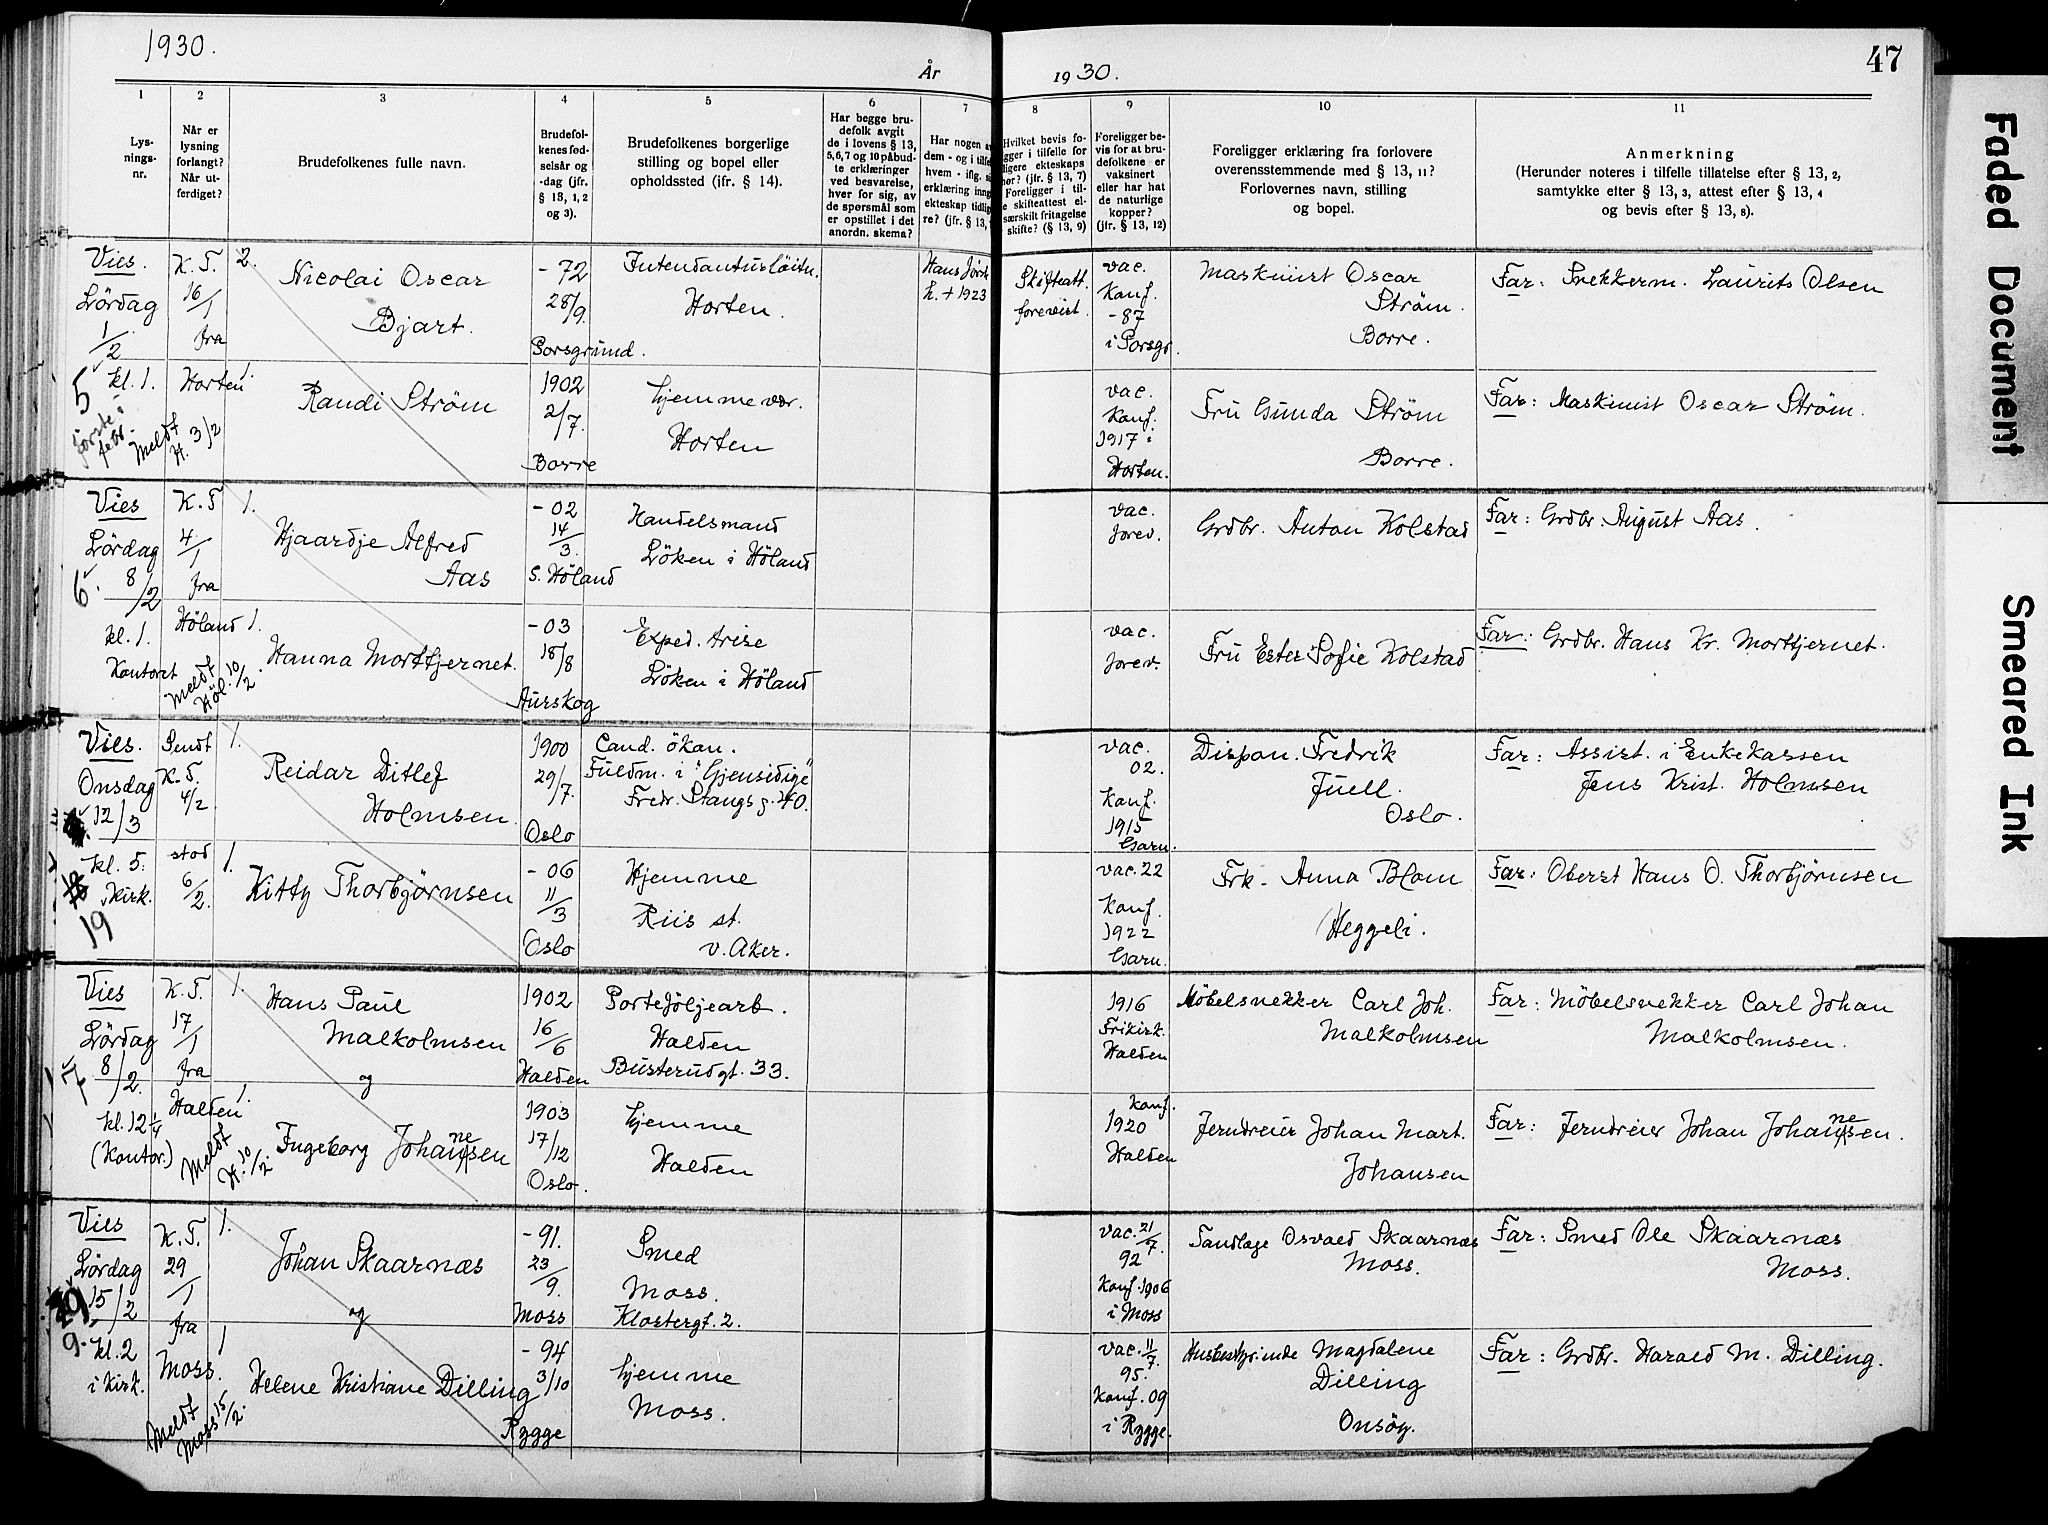 1930.
År
1930.
47
1
Lys-
nings-
nr.
2
Når er
lysning
forlangt?
Når ut-
ferdiget?
3
Brudefolkenes fulle navn.
4
Brudefol-
kenes fød-
selsår og
-dag (jfr.
§ 13, 1, 2
og 3).
5
Brudefolkenes borgerlige
stilling og bopel eller
opholdssted (ifr. § 14).
6
Har begge bru-
defolk avgit
de i lovens § 13,
5,6,7 og 10 påbud-
te erklæringer
ved besvarelse,
hver for sig, av
de spørsmål som
er opstillet i det
anordn. skema?
7
Har nogen
dem - og i tilfe
hvem - iflg.
erklæring inng
ekteskap tidlig
re? (jfr. § 13,
8
Hvilket bevis fo-
gger i tilfelle for
ligere ekteskaps
hør? (jfr. § 13, 7)
Foreligger i til-
e skifteattest el-
særskilt fritagelse
skifte? (§ 13, 9)
9
Foreligger be-
vis for at bru-
defolkene er
vaksinert
eller har hat
de naturlige
kopper?
(jfr. § 13, 12)
10
Foreligger erklæring fra forlovere
overensstemmende med § 13, 11?
Forlovernes navn, stilling
og bopel.
11
Anmerkning
(Herunder noteres i tilfelle tillatelse efter § 13, 2,
samtykke efter § 13, 3, attest efter § 13, 4
og bevis efter § 13, 8).
Vies.
Lördag
1/2
kl. 1.
5
K.T.
16/1
fra
Horten
Meldt
H. 3/2
2.
Nicolai Oscar
Bjart.
- 72
28/9.
Porsgrund.
Intendantusløitn.
Horten.
Hans
h. + 1923
Skifteatt.
forevist.
vac.
Konf.
- 87
i Porsgr.
Maskinist Oscar
Strøm.
Borre.
Far: Snekkerm. Laurits Olsen
1.
Randi Strøm
1902
2/7.
Borre
hjemmevær.
Horten
vac.
Konf.
1917 i
Horten.
Fru Gunda Strøm
Borre.
Far: Maskinist Oscar Strøm.
Vies
Lördag
8/2
6.
kl. 1.
Kontoret
K.T
4/1
fra
Höland
Meldt
Höl. 10/2.
1.
Hjaardje Alfred
Aas
- 02
14/3.
S. Höland
Handelsmand
Löken i Höland
vac.
forev.
Grdbr. Anton Kolstad
Far: Grdbr August Aas.
1.
Hanna Mortfjernet.
- 03
18/8
Aurskog
Exped. trise
Löken i Höland
vac.
forev.
Fru Ester Sofie Kolstad
Far: Grdbr. Hans Kr. Mortfjernet.
Vies.
Onsdag
12/3
kl. 5.
i Kirk.
19
Sendt
K.T.
4/2
stod
6/2.
1.
Reidar Ditlef
Holmsen.
1900
29/7.
Oslo
Cand. ökon.
Fuldm. i "Gjensidige"
Fredr. Stangs g. 40.
vac.
02.
Konf.
1915
Garn.
Dispon. Fredrik
Juell.
Oslo.
Far: Assist. i Enkekassen
Jens Krist. Holmsen
1.
Kitty Thorbjørnsen
- 06
11/3
Oslo
Hjemme
Riis st.
v. Aker.
vac. 22
Konf.
1922
Garn.
Frk. Anna Blom
Heggeli.
Far: Oberst Hans O. Thorbjørnsen
Vies
Lördag
8/2.
7.
kl. 12 1/4
(Kontor.)
K.T.
17/1
fra
Halden
Meldt
H. 10/2.
1.
Hans Paul
Malkolmsen
og
1902
16/6
Halden
Porteföljearb.
Halden
Busterudgt. 33.
1916
Frikirk.
Halden
Möbelsnekker Carl Joh.
Malkolmsen
Far: Möbelsnekker Carl Johan
Malkolmsen.
1.
Ingeborg Johannesen
1903
17/12
Oslo.
hjemme
Halden
Konf.
1920
Halden
Jerndreier Johan Mart.
Johansen
Far: Jerndreier Johan Johannesen.
Vies
Lördag
15/2
9.
kl. 2
i Kirk.
K.T.
29/1
fra
Moss.
Meldt
Moss 15/2.
1.
Johan Skaarnæs
og
- 91.
23/9.
Moss
Smed
Moss.
Klostergt. 2.
vac. 21/7.
92
Konf. 1906
i Moss
Tandlæge Osvald Skaarnæs
Moss.
Far: Smed Ole Skaarnæs
Moss.
1
Helene Kristiane Dilling
- 94
3/10
Rygge
hjemme
Moss.
vac. 11/7.
95.
Konf. 09
i Rygge.
Husbestyrinde Magdalene
Dilling
Onsöy.
Far: Grdbr. Harald M. Dilling.
Faded Document
Smeared Ink